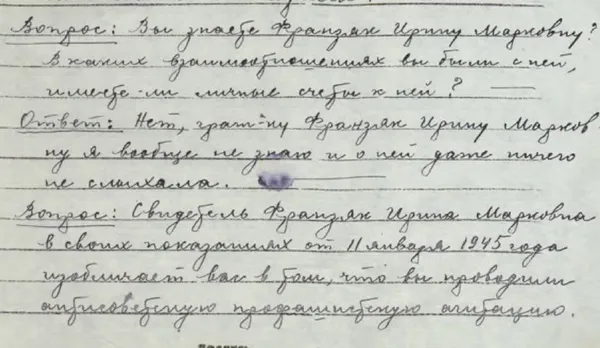 Вопрос: Вы знаете Франзяк Ирину Марковну?
В каких взаимоотношениях вы были с ней,
имеете-ли личные счеты к ней?
Ответ: Нет, граж-ну Франзяк Ирину Марков
ну я вообще не знаю и о ней даже ничего
не слыхала.
Вопрос: Свидетель Франзяк Ирина Марковна
в своих показаниях от 11 января 1945 года
изобличает вас в том, что вы проводили
антисоветскую профашистскую агитацию.